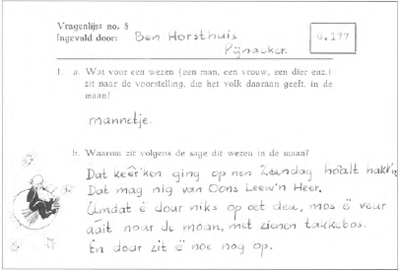 Vragenlijst no. 8
Ingevuld door: Ben Horsthuis
Rijnacker.
G.177
1. a. Wat voor een wezen (een man, een vrouw, een dier enz.)
zit naar de voorstelling, die het volk daaraan geeft, in de
maan?
mannetje.
b. Waarom zit volgens de sage dit wezen in de maan?
Dat keer'ken ging op nen Zundag hoalt hakk'n
Dat mag nig van Oons Leew'n Heer.
Umdat ë dour niks op oet deu, mos ë veur
aait noar de moan, met zienen takkebos.
En dour zit ë noe nog op.